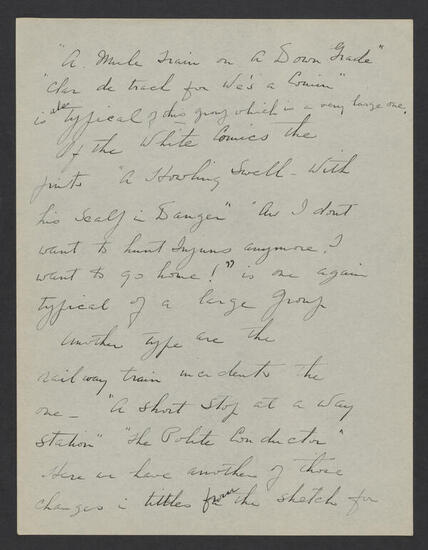 "A Mule Train on a Down Grade"
"Clar de track for We's a Comin"
is also typical of this group which is a very large one.
Of the White Comics the
prints "A Howling Swell - With
his Scalf in Danger" "Aw I dont
want to hunt Injuns anymore, I
want to go home!" is one again
typical of a large group
Another type are the
railway train incidents the
one - "A Short Stop at a Way
Station" "The Polite Conductor"
Here we have another of those
changes in tittles from the sketch for